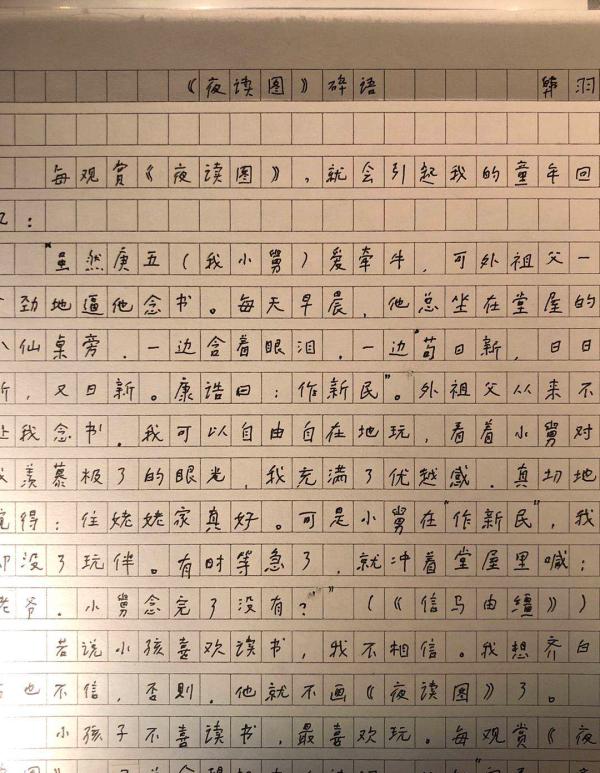 《夜读图》碎语 韩羽
每观赏《夜读图》，就会引起我的童年回
忆：
“虽然庚五（我小舅）爱牵牛，可外祖父一
个劲地逼他念书。每天早晨，他总坐在堂屋的
八仙桌旁，一边含着眼泪，一边“苟日新，日日
新，又日新。康诰曰：作新民”。外祖父从来不
让我念书，我可以自由自在地玩，看着小舅对
我羡慕极了的眼光，我充满了优越感，真切地
觉得：住姥姥家真好。可是小舅在“作新民”，我
却没了玩伴。有时等急了，就冲着堂屋里喊：
老爷，小舅念完了没有？”（《信马由缰》）
若说小孩喜欢读书，我不相信。我想齐白
石也不信，否则，他就不画《夜读图》了。
小孩子不喜读书，最喜欢玩。每观赏《夜